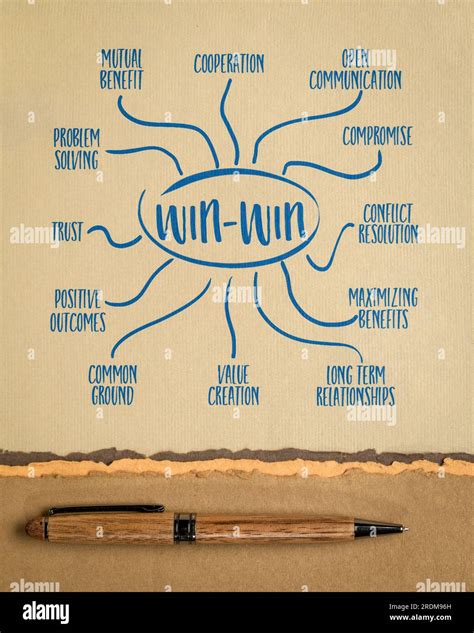 MUTUAL
BENEFIT
COOPERATION
OPEN
COMMUNICATION
PROBLEM
SOLVING
COMPROMISE
TRUST
WIN-WIN
CONFLICT
RESOLUTION
POSITIVE
OUTCOMES
MAXIMIZING
BENEFITS
COMMON
GROUND
VALUE
CREATION
LONG TERM
RELATIONSHIPS
alamy
alamy
alamy
alamy
alamy
Image ID: 2RDM96H
www.alamy.com